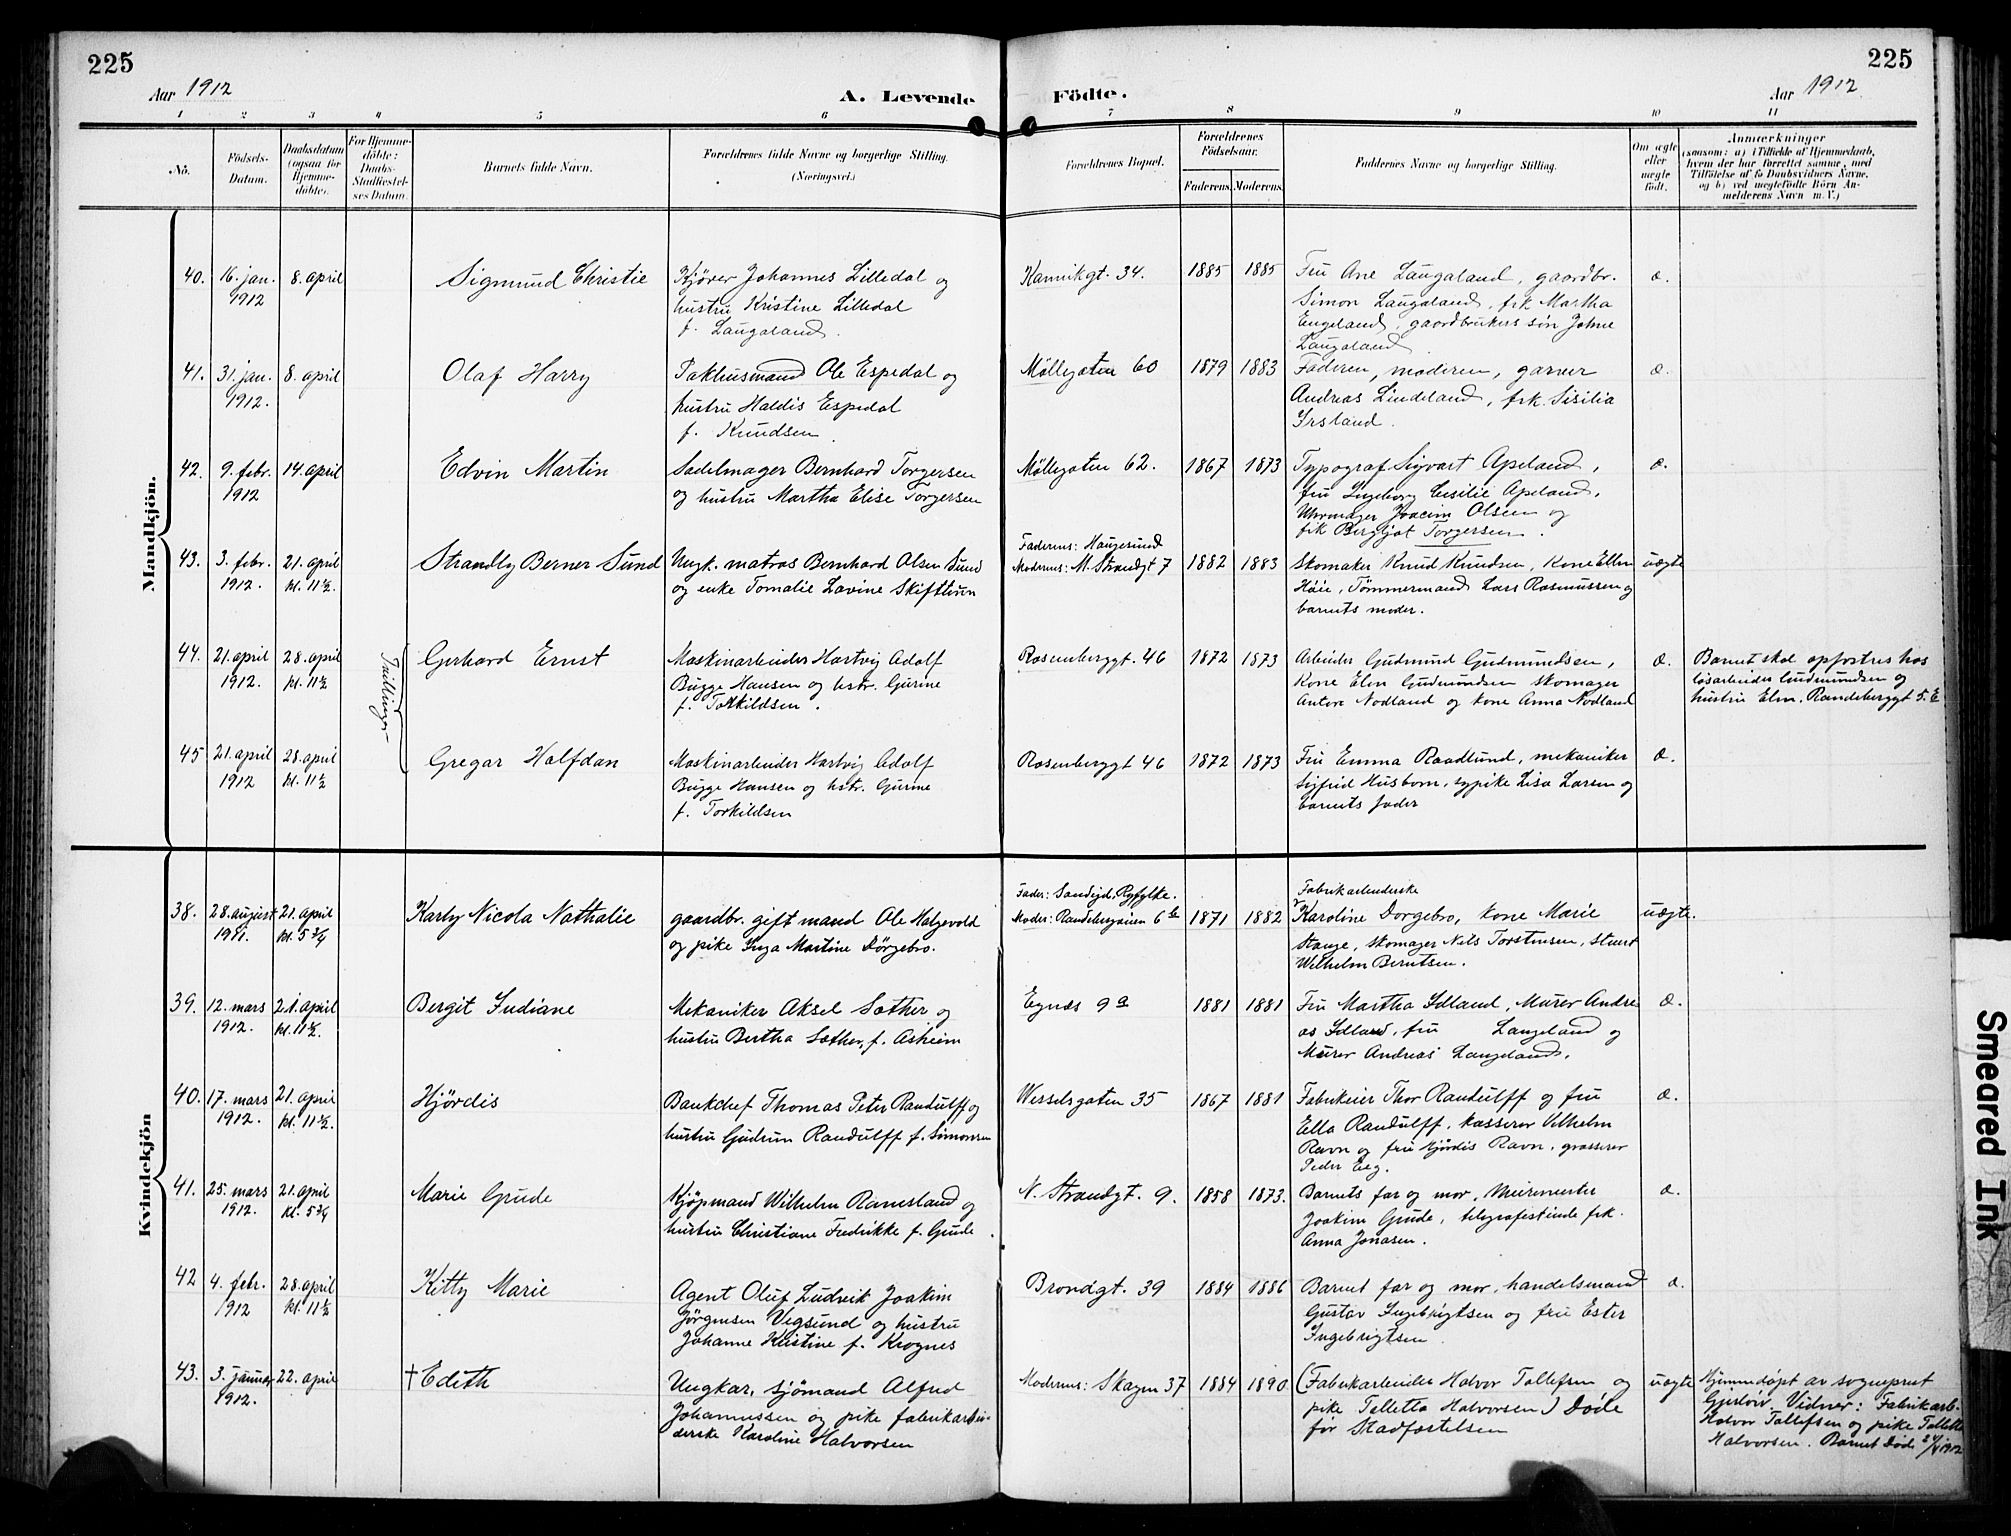 225
225
Aar 1912
A. Levende Födte.
Aar 1912
1 2 3 4 5 6 7 8 9 10 11
No.
Födsels-
Datum.
Daabsdatum
(ogsaa for
Hjemme-
döbte).
For Hjemme-
döbte:
Daabs-
Stadfæstel-
ses Datum.
Barnets fulde Navn.
Forældrenes fulde Navne og borgerlige Stilling.
(Næringsvei.)
Forældrenes Bopæl.
Forældrenes
Födselsaar.
Faderens. Moderens.
Faddernes Navne og borgerlige Stilling.
Om ægte
eller
uægte
født.
Anmærkninger
(saasom: a) i Tilfælde af Hjemmedaab,
hvem der har forrettet samme, med
Tilföielse af to Daabsvidners Navne,
og b) ved uægtefödte Börn An-
melderens Navn m. V.)
Mandkjön.
40. 16. jan.
1912
8. april
Sigmund Christie
Kjører Johannes Lilledal og
hustru Kristine Lilledal
f. Laugaland.
Kannikgt. 34.
1885 1885
Fru Ane Laugaland, gaardbr.
Simon Laugaland, frk Martha
Engeland, gaardbrukers søn Johne
Laugaland
æ.
41. 31. jan.
1912.
8. april
Olaf Harry
Pakhusmand Ole Espedal og
hustru Haldis Espedal
f. Knudsen
Møllegaten 60
1879 1883
Faderen, moderen, garver
Andreas Lindeland, frk. Sisilia
Irsland.
æ.
42. 9. febr.
1912
14. april
Edvin Martin
Sadelmager Bernhard Torgersen
og hustru Martha Elise Torgersen
Møllegaten 62.
1867 1873
Typograf Sigvart Apeland,
fru Ingeborg Cesilie Apeland,
Uhrmager Joacim Olsen og
frk Bergljot Torgersen.
æ.
43. 3. febr.
1912.
21. april
kl. 11½.
Strandly Berner Sund
Ungk. matros Bernhard Olsen Sund
og enke Tomalie Lavine Skiftun
Faderens: Haugesund
Moderens: N. Strandgt 7
1882 1883
Skomaker Knud Knudsen, Kone Ellen
Høie, Tømmermand Lars Rasmussen og
barnets moder.
uægte
44. 21. april
1912.
28. april
kl. 11½
Tvillinger
Gerhard Ernst
Maskinarbeider Hartvig Adolf
Bugge Hansen og hstr. Gurine
f. Torkildsen.
Rosenberggt. 46
1872 1873
Arbeider Gudmund Gudmundsen,
Kone Elen Gudmundsen skomager
Antore Nodland og kone Anna Nodland
æ.
Barnet skal opfostres hos
løsarbeider Gudmundsen og
hustru Elen, Randeberggt 5. E
45 21. april
1912
28. april
kl. 11½
Gregar Halfdan
Maskinarbeider Hartvig Adolf
Bugge Hansen og hstr. Gurine
f. Torkildsen
Rosenberggt 46
1872 1873
Fru Emma Raadlund, mekaniker
Sigfrid Husborn, sypike Lisa Larsen og
barnets fader
æ.
Kvindekjön
38. 28. august
1911.
21. april
kl. 5¾
Karly Nicola Nathalie
gaardbr. gift mand Ole Halgevold
og pike Inga Martine Dørgebro.
Fader: Sandeid, Ryfylke.
Moder: Randebergveien 6 b
1871 1882
Fabrikarbeiderske
Karoline Dørgebro, kone Marie
Stange, skomager Nils Torstensen, stuert
Wilhelm Berntsen.
uægte.
39. 12. mars
1912.
21. april
kl. 11½.
Bergit Indiane
Mekaniker Aksel Sæther og
hustru Bertha Sæther, f. Asheim
Egnæs 9 a
1881 1881
Fru Martha Idland, Murer Andre
as Idland, fru Langeland og
Murer Andreas Langeland.
æ.
40. 17. mars
1912.
21. april
kl. 11½.
Hjørdis
Bankchef Thomas Peter Randulff og
hustru Gudrun Randulff f. Simonsen
Wesselsgaten 35
1867 1881
Fabrikeier Thor Randulff og fru
Ella Randulff, kasserer Vilhelm
Ravn og fru Hjørdis Ravn, grosserer
Peder Eeg.
æ.
41. 25. mars
1912.
21. april
kl. 5¾
Marie Grude
Kjøpmand Wilhelm Ramsland og
hustru Christiane Fredrikke f. Grude.
N. Strandgt. 9.
1858 1873.
Barnets far og mor, Muremester
Joakim Grude, telegrafistinde frk.
Anna Jonasen.
æ.
42 4. febr.
1912
28. april
kl. 11½
Kitty Marie
Agent Oluf Ludvik Joakim
Jørgensen Vegsund og hustru
Johanne Kristine f. Krognes
Brondgt. 39
1884 1886
Barnet far og mor, handelsmand
Gustav Ingebrigtsen og fru Ester
Ingebrigtsen
æ.
43. 3. januar
1912.
22. april
† Edith
Ungkar, sjømand Alfred
Johannessen og pike fabrikarbei-
derske Karoline Halvorsen
Moderens: Skagen 37
1884 1890
(Fabrikarbeider Halvor Tollefsen og
pike Telletta Halvorsen) Døde
før Stadfæstelsen
uægte
Hjemmedøpt av sogneprest
Gjerløv. Vidner: Fabrikarb.
Halvor Tollefsen og pike Telletta
Halvorsen. Barnet døde 24/4 1912
Smeared Ink